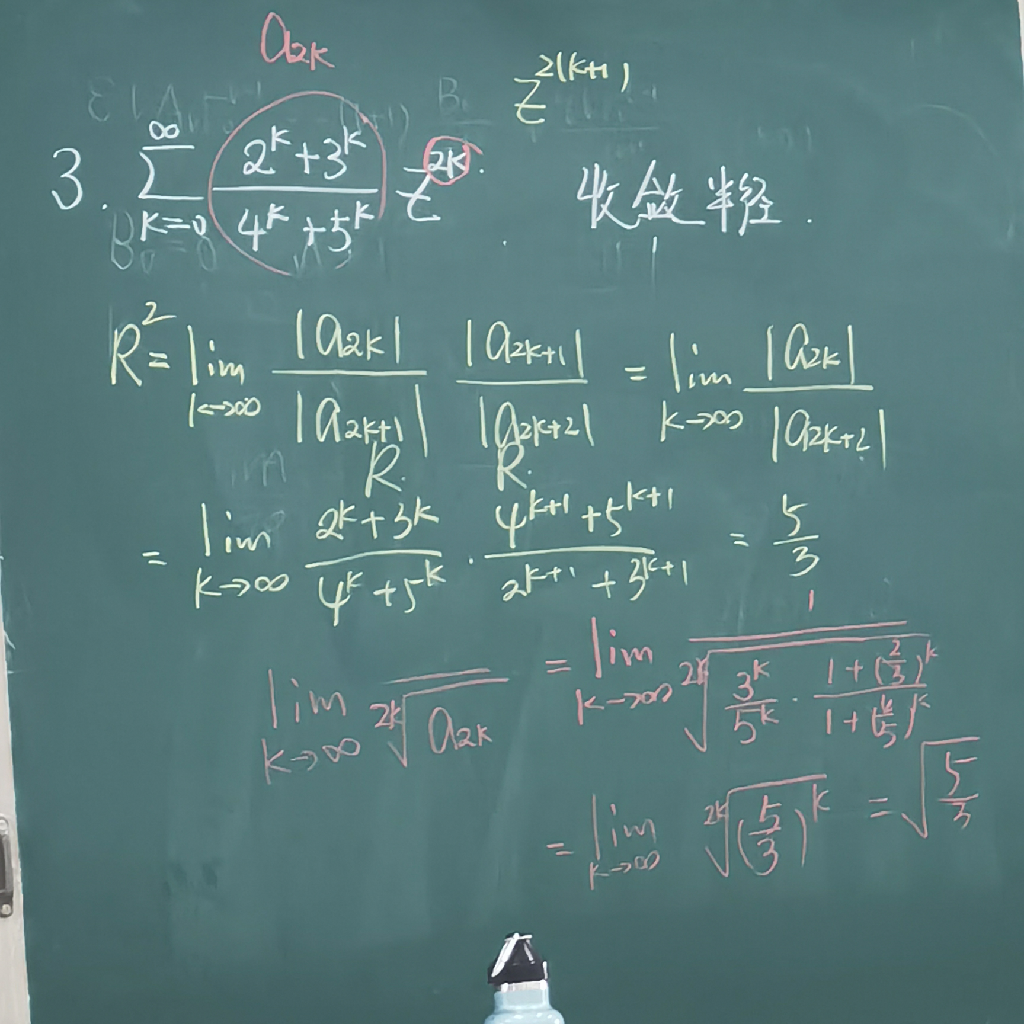 a_{2k}
z^{2(k+1)}
3. \sum_{k=0}^{\infty} \frac{2^k+3^k}{4^k+5^k} z^{2k}. 收敛半径.
R^2 = \lim_{k→∞} \frac{|a_{2k}|}{|a_{2k+1}|} \frac{|a_{2k+1}|}{|a_{2k+2}|} = \lim_{k→∞} \frac{|a_{2k}|}{|a_{2k+2}|}
R. R.
= \lim_{k→∞} \frac{2^k+3^k}{4^k+5^k} \cdot \frac{4^{k+1}+5^{k+1}}{2^{k+1}+3^{k+1}} = \frac{5}{3}
\lim_{k→∞} \overline{\sqrt[2k]{a_{2k}}} = \lim_{k→∞} \frac{1}{\sqrt[2k]{\frac{3^k}{5^k} \cdot \frac{1+(\frac{2}{3})^k}{1+(\frac{4}{5})^k}}}
= \lim_{k→∞} \sqrt[2k]{(\frac{5}{3})^k} = \sqrt{\frac{5}{3}}